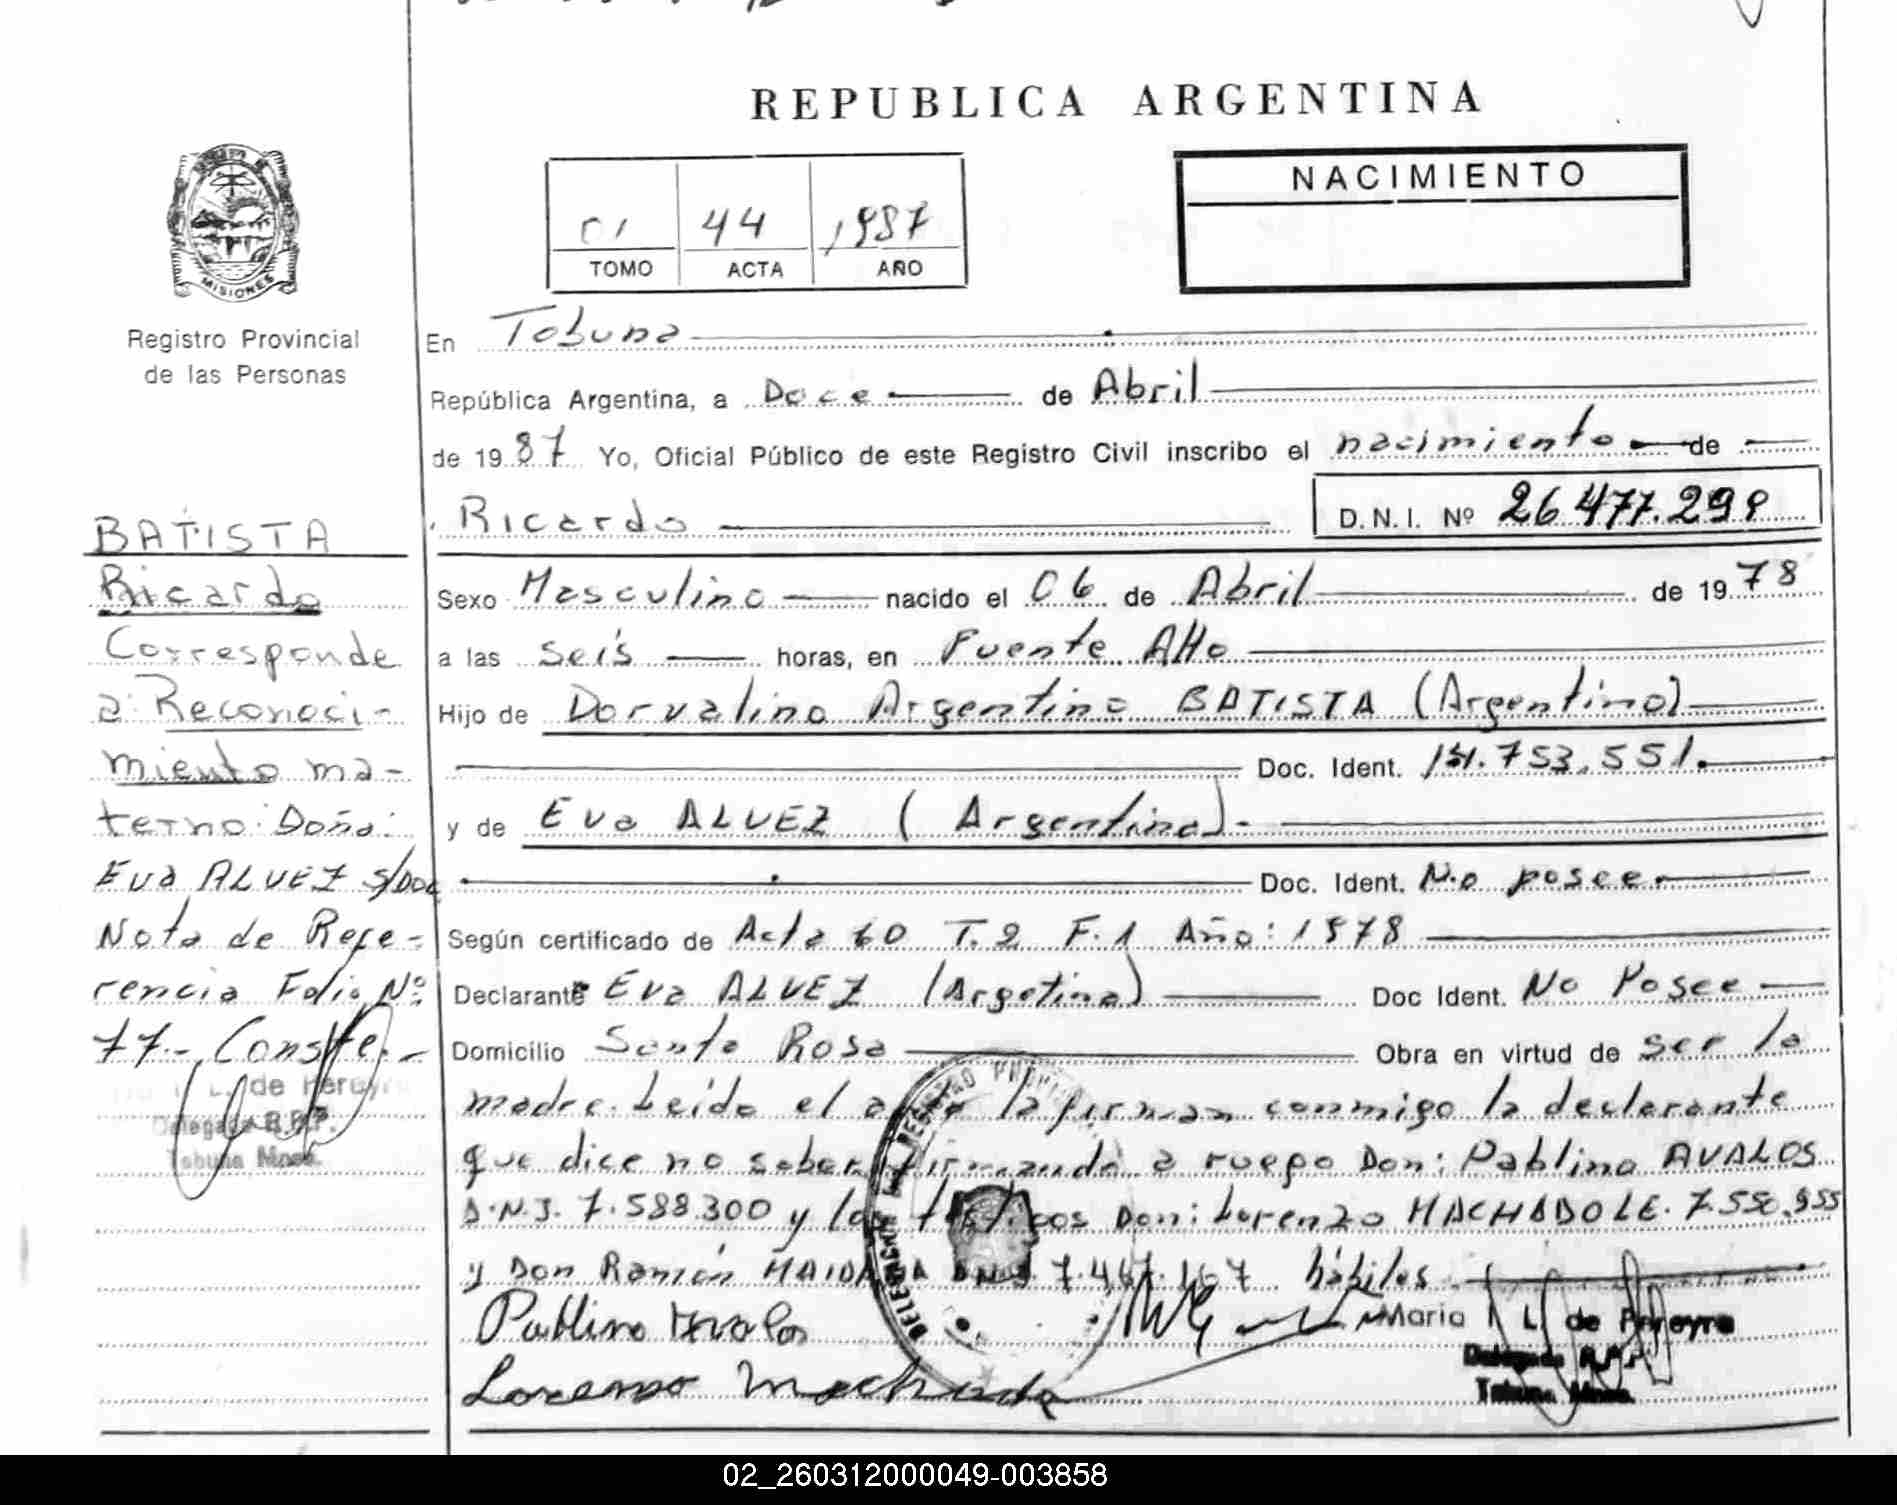 REPUBLICA ARGENTINA
NACIMIENTO
01 44 1987
TOMO ACTA AÑO
MISIONES
Registro Provincial
de las Personas
En Tobuna
República Argentina, a Doce de Abril
de 1987 Yo, Oficial Público de este Registro Civil inscribo el nacimiento de
Ricardo D.N.I. Nº 26.477.299
Sexo Masculino nacido el 06 de Abril de 1978
a las seis horas, en Puente Alto
Hijo de Dorvalino Argentino BATISTA (Argentino)
Doc. Ident. 753.551.
y de Eva ALVEZ (Argentina).-
Doc. Ident. No posee.
Según certificado de Acta 60 T. 2 F. 1 Año: 1978
Declarante Eva ALVEZ (Argetina) Doc Ident. No Posee
Domicilio Santa Rosa Obra en virtud de ser la
madre. Leída el acta la firman conmigo la declarante
que dice no saber firmando a ruego Don: Pablino AVALOS
D.N.I. 7.588.300 y los testigos Don: Lorenzo MACHADO LE. 7.550.955
y Don Ramón MAIDANA D.N.I. 7.467.167 hábiles
Pablino Avalos
Lorenzo Machado
Maria L. de Pereyra
Delegada R.P.P.
Tobuna Mnes.
BATISTA
Ricardo
Corresponde
a: Reconoci-
miento ma-
terno: Doña:
Eva ALVEZ s/Doc
Nota de Refe-
rencia Folio Nº:
77.- Conste.-
L. de Pereyra
Delegada R.P.P.
Tobuna Mnes.
DELEGACION REGISTRO
02_260312000049-003858